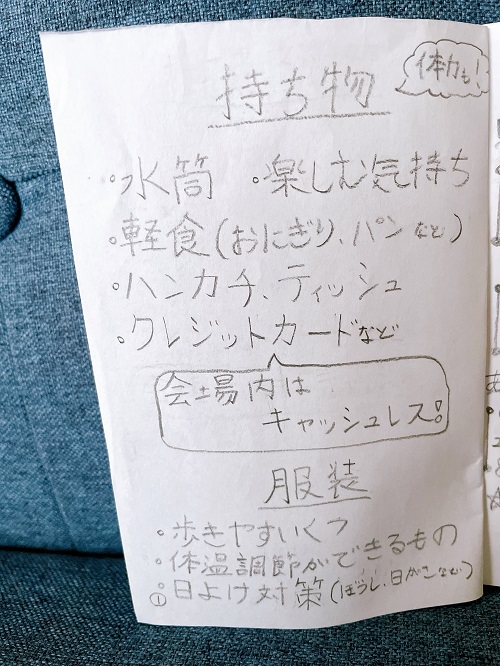 体力も!
持ち物
・水筒 ・楽しむ気持ち
・軽食(おにぎり、パンなど)
・ハンカチ、ティッシュ
・クレジットカードなど
会場内は
キャッシュレス!!
服装
・歩きやすいくつ
・体温調節ができるもの
・日よけ対策(ぼうし、日がさなど)
①